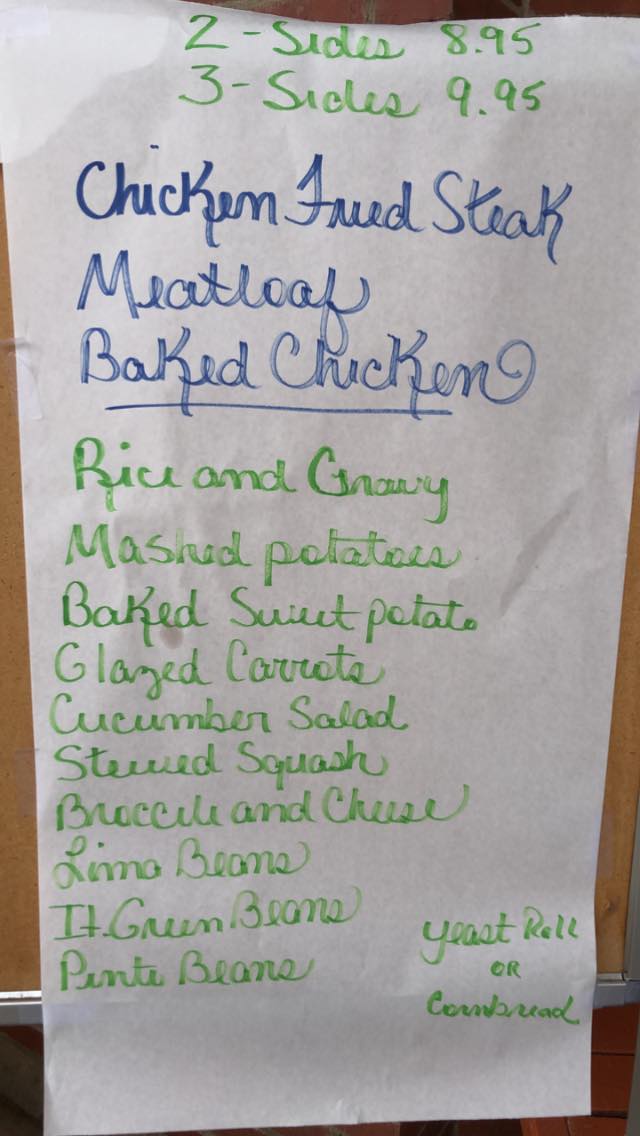 2-Sides 8.95
3-Sides 9.95
Chicken Fried Steak
Meatloaf
Baked Chicken
Rice and Gravy
Mashed potatoes
Baked Sweet potato
Glazed Carrots
Cucumber Salad
Stewed Squash
Broccili and Cheese
Lima Beans
It. Green Beans
Pinto Beans
Yeast Roll
OR
Cornbread